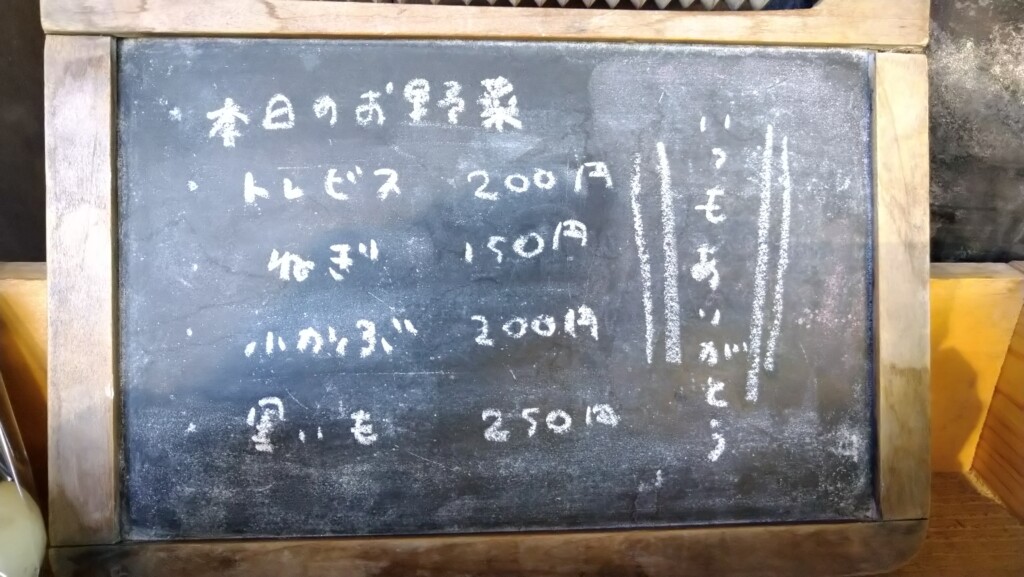 本日のお野菜
・トレビス 200円
・ねぎ 150円
・小かぶ 200円
・里いも 250円
いつもありがとう